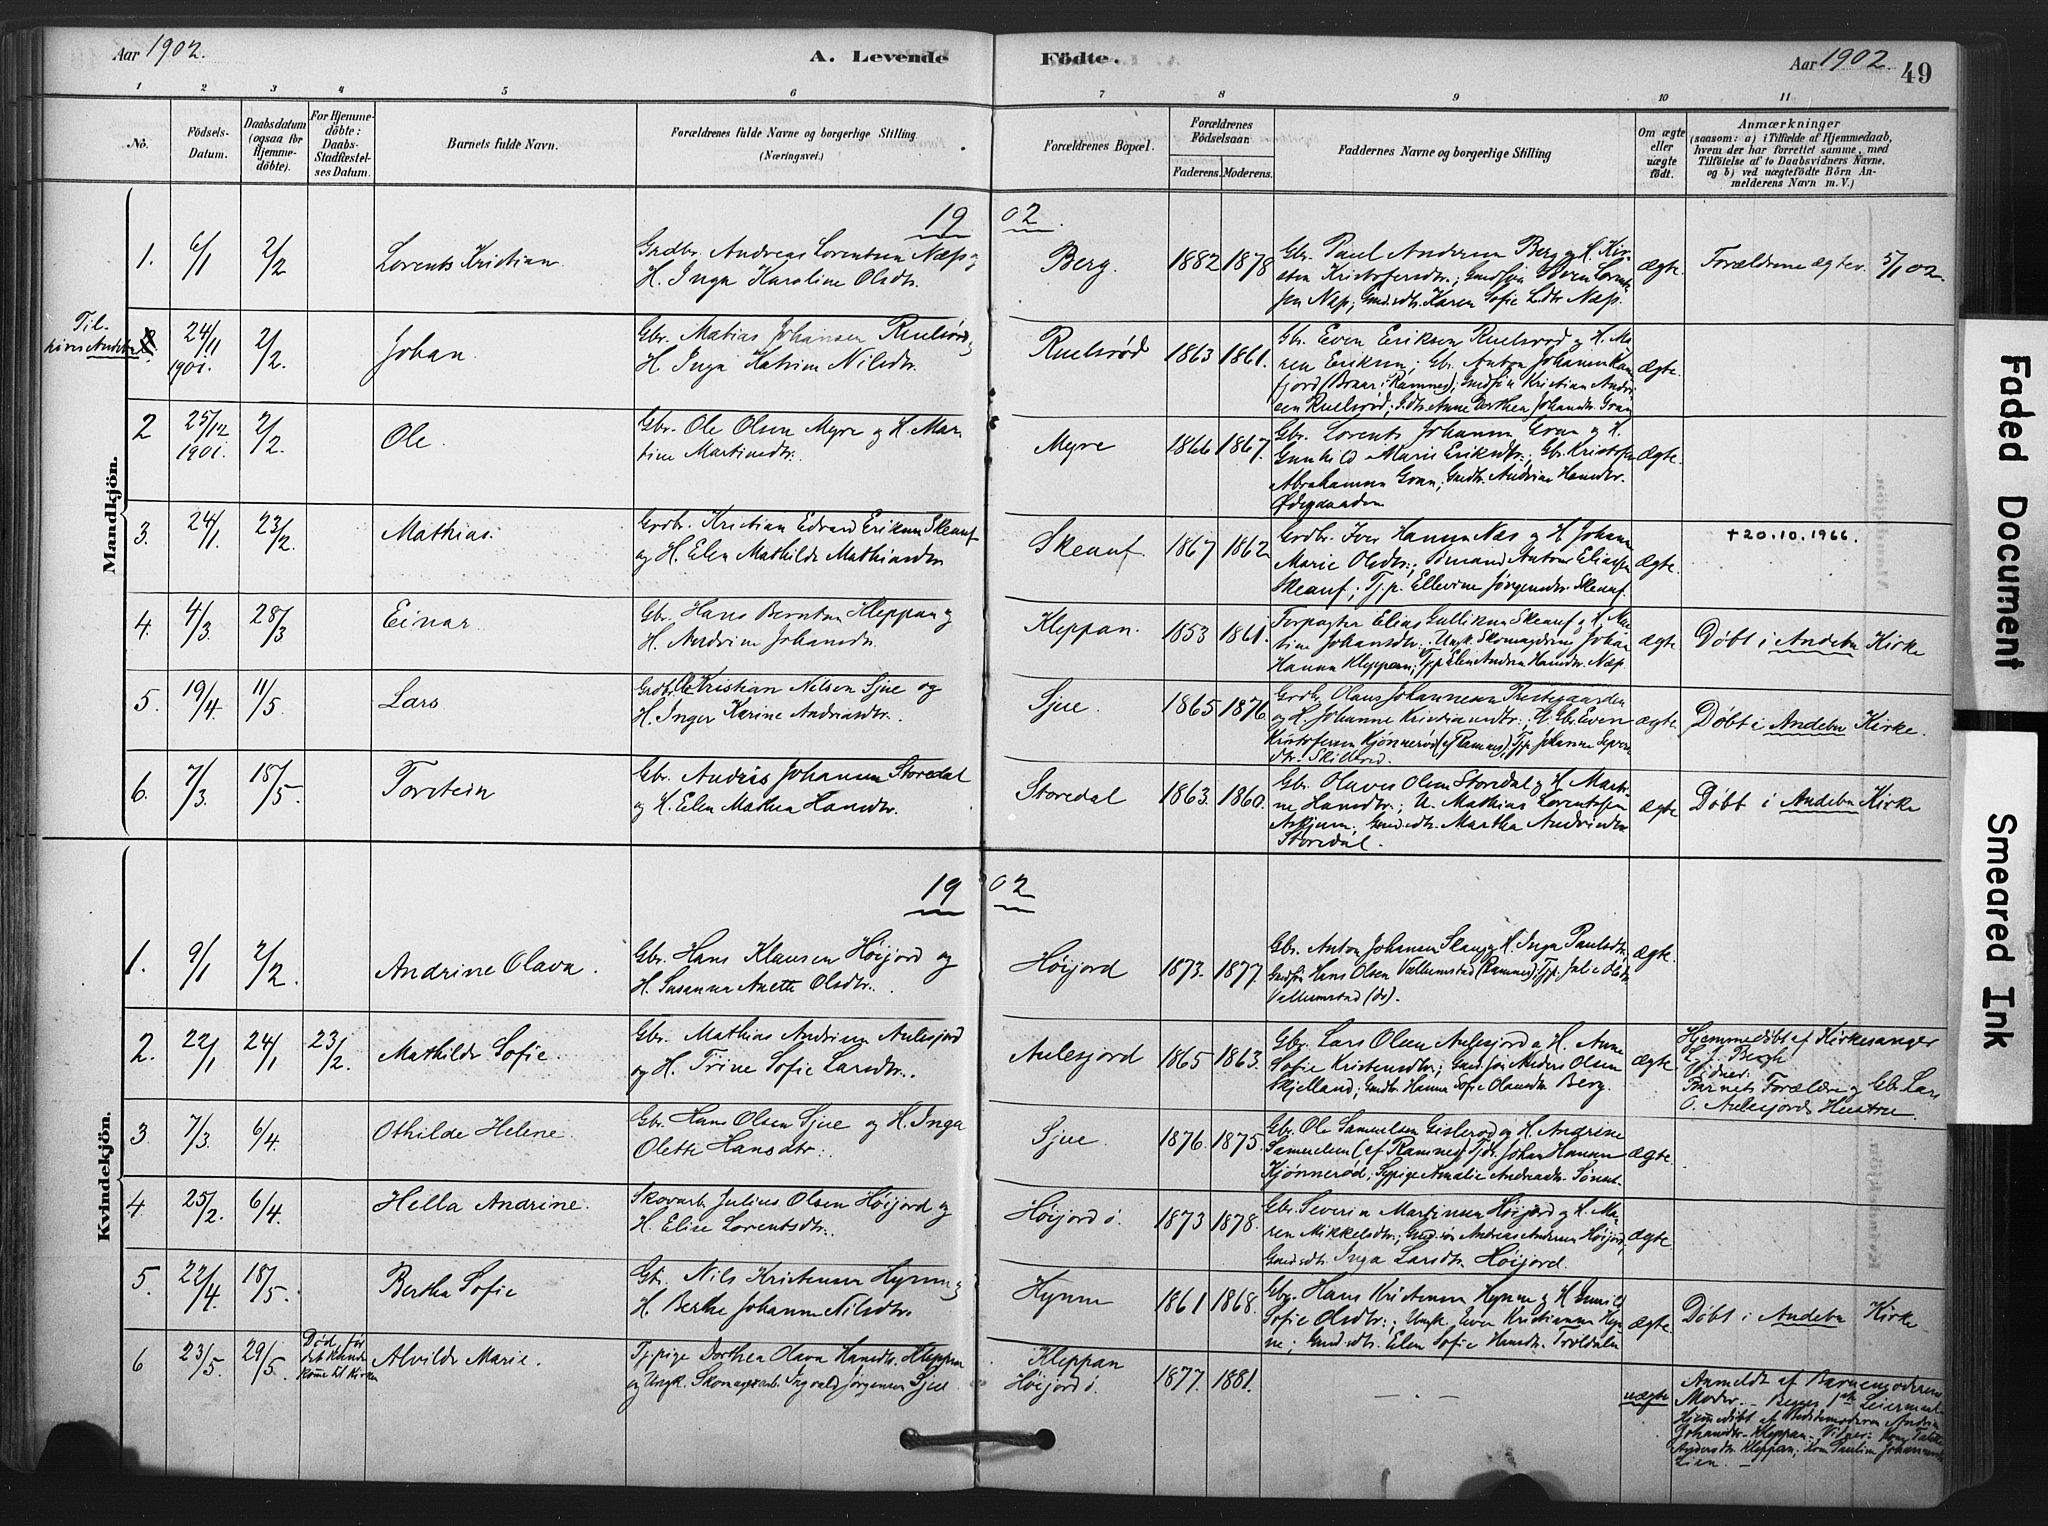 Aar 1902.
A. Levende Födte.
Aar 1902.
49
1 2 3 4 5 6 7 8 9 10 11
No.
Födsels-
Datum.
Daabsdatum
(ogsaa for
Hjemme-
döbte).
For Hjemme-
döbte:
Daabs-
Stadfæstel-
ses Datum.
Barnets fulde Navn.
Forældrenes fulde Navne og borgerlige Stilling.
(Næringsvei.)
Forældrenes Bopæl.
Forældrenes
Födselsaar.
Faderens. Moderens.
Faddernes Navne og borgerlige Stilling
Om ægte
eller
uægte
födt.
Anmærkninger
(saasom: a) i Tilfælde af Hjemmedaab,
hvem der har forrettet samme, med
Tilföielse af to Daabsvidners Navne,
og b) ved uægtefödte Börn An-
melderens Navn m. V.)
Mandkjön.
1902.
1. 6/1 2/2 Lorents Kristian
Andreas Lorentsen Næs og
H. Inga Karoline Olsdtr.
Berg. 1882 1878
Gbr. Paul Andersen Berg og H. Kir-
sten Kristofersdtr.;
Karen Sofie Næs.
ægte. Forældrene ægtev. 5/1 02.
Til-
24/11 1901. 2/2 Johan.
Gbr. Matias Johansen Ruelsrød og
H. Inga Katrine Nilsdtr.
Ruelsrød 1863 1861.
Gbr. Even Eriksen Ruelsrød og H. Ma-
ren Eriksen; Gbr. Anton Johansen
(Ramnes); Kristian Andr-
sen Ruelsrød; Anne Dorthea Johansdtr. Gran
ægte.
2 25/12 1901. 2/2 Ole.
Gbr. Ole Olsen Myre og H. Mar-
tine Martinsdtr.
Myre 1866 1867.
Gbr. Lorents Johansen Gran og H.
Gunhild Marie Eriksdtr.; Gbr. Kristofer
Abrahamsen Gran; Andrine Hansdtr.
Ødegaarden
ægte.
3. 24/1 23/2 Mathias.
Grdbr. Kristian Edvard Eriksen Skeauf
og H. Elen Mathilde Mathiasdtr.
Skeauf. 1867 1862
Grdbr. Iver Hansen Næs og H. Johanne
Marie Olsdtr.; Sømand Anton Eliassen
Skeauf; Tj.p. Ellevine Jørgensdtr. Skeauf.
ægte. +20.10.1966.
4. 4/3 28/3 Einar
Gbr. Hans Berntsen Kleppan og
H. Andrine Johansdtr.
Kleppan. 1853 1861.
Forpagter Elias Gulliksen Skeauf og H.
Johansdtr.; Ungk. Johan
Hansen Kleppan; Tj.p. Elen Andrea Hansdtr. Næs.
ægte Døbt i Andebu Kirke
5. 19/4. 11/5. Lars
Grdbr. Ole Kristian Nilsen Sjue og
H. Inger Karine Andreasdtr.
Sjue. 1865 1876.
Grdbr. Olaus Johannesen Prestegaarden
og H. Johanne Kristiansdtr.; Gbr. Even
Kristofersen Kjønnerød (af Ramnes), Tjp. Johanne
ægte. Døbt i Andebu Kirke.
6. 7/3. 18/5. Torstein
Gbr. Andrias Johansen Storedal
og H. Elen Mathea Hansdtr.
Storedal 1863. 1860.
Gbr. Olaves Olsen Storedal og H. Marti-
ne Hansdtr.; U. Mathias Lorentsen
Askjum. Martha
Storedal.
ægte Døbt i Andebu Kirke
Kvindekjön.
1902
1. 9/1 2/2. Andrine Olava.
Gbr. Hans Klausen Høijord og
H. Susanna Anette Olsdtr.
Høijord 1873. 1877.
Gbr. Anton Johansen Slang og H. Inga Paulsdtr.
Hans Olsen (Ramnes), Tj.p.
(ds).
ægte.
2. 22/1 24/1 23/2 Mathilde Sofie.
Gbr. Mathias Andersen Aulesjord
og H. Trine Sofie Larsdtr.
Aulesjord 1865 1863.
Gbr. Lars Olsen Aulesjord og H. Anne
Sofie Kristensdtr.; Anders Olsen
Skjelland; Hanne Sofie Olausdtr. Berg.
ægte Hjemmedøbt af Kirkesanger
Bergh
Vidner:
Barnets Forældre og Gbr. Lars
O. Aulesjords Hustru.
3 7/3. 6/4. Othilde Helene.
Gbr. Hans Olsen Sjue og H. Inga
Olette Hansdtr.
Sjue. 1876. 1875.
Gbr. Ole Samuelsen Gislerød og H. Andrine
Samuelsen (af Ramnes) Johan Hansen
Kjønnerød. Sypige Amalie Andreasdtr.
ægte
4 25/2. 6/4. Hella Andrine.
Skovarb. Julius Olsen Høijord og
H. Elise Lorentsdtr.
Høijord ö. 1873 1878.
Gbr. Severin Martinsen Høijord og H. Ma-
ren Mikkelsdtr.; Andreas Andersen Høijord,
Inga Larsdtr. Høijord.
ægte
5. 22/4 18/5. Bertha Sofie
Gbr. Nils Kristensen Hynne og
H. Berthe Johanne Nilsdtr.
Hynne 1861 1868.
Gbr. Hans Kristensen Hynne og H.
Sofie Olsdtr.; Ungk. Iver Kristiansen Hyn-
ne; Elen Sofie Hansdtr. Troldalen
ægte Døbt i Andebu Kirke
6 23/5. 29/5.
Døde før
det kunde
komme til Kirken
Alvilde Marie.
Tj.pige Dorthea Olava Hansdtr. Kleppan
og Ungk. Skomagerarb. Ingvald Jørgensen Sjue
Kleppan
Høijord ö. 1877. 1881. — . —
uægte
Anmeldt af Barnemoderens
Moder. — Begges 1ste Leiermaal
Hjemmedøbt af Andrine
Johansdtr. Kleppan. Vidner: Kone
Andersdtr. Kleppan, Kone Pauline
Lien. —
Faded Document
Smeared Ink